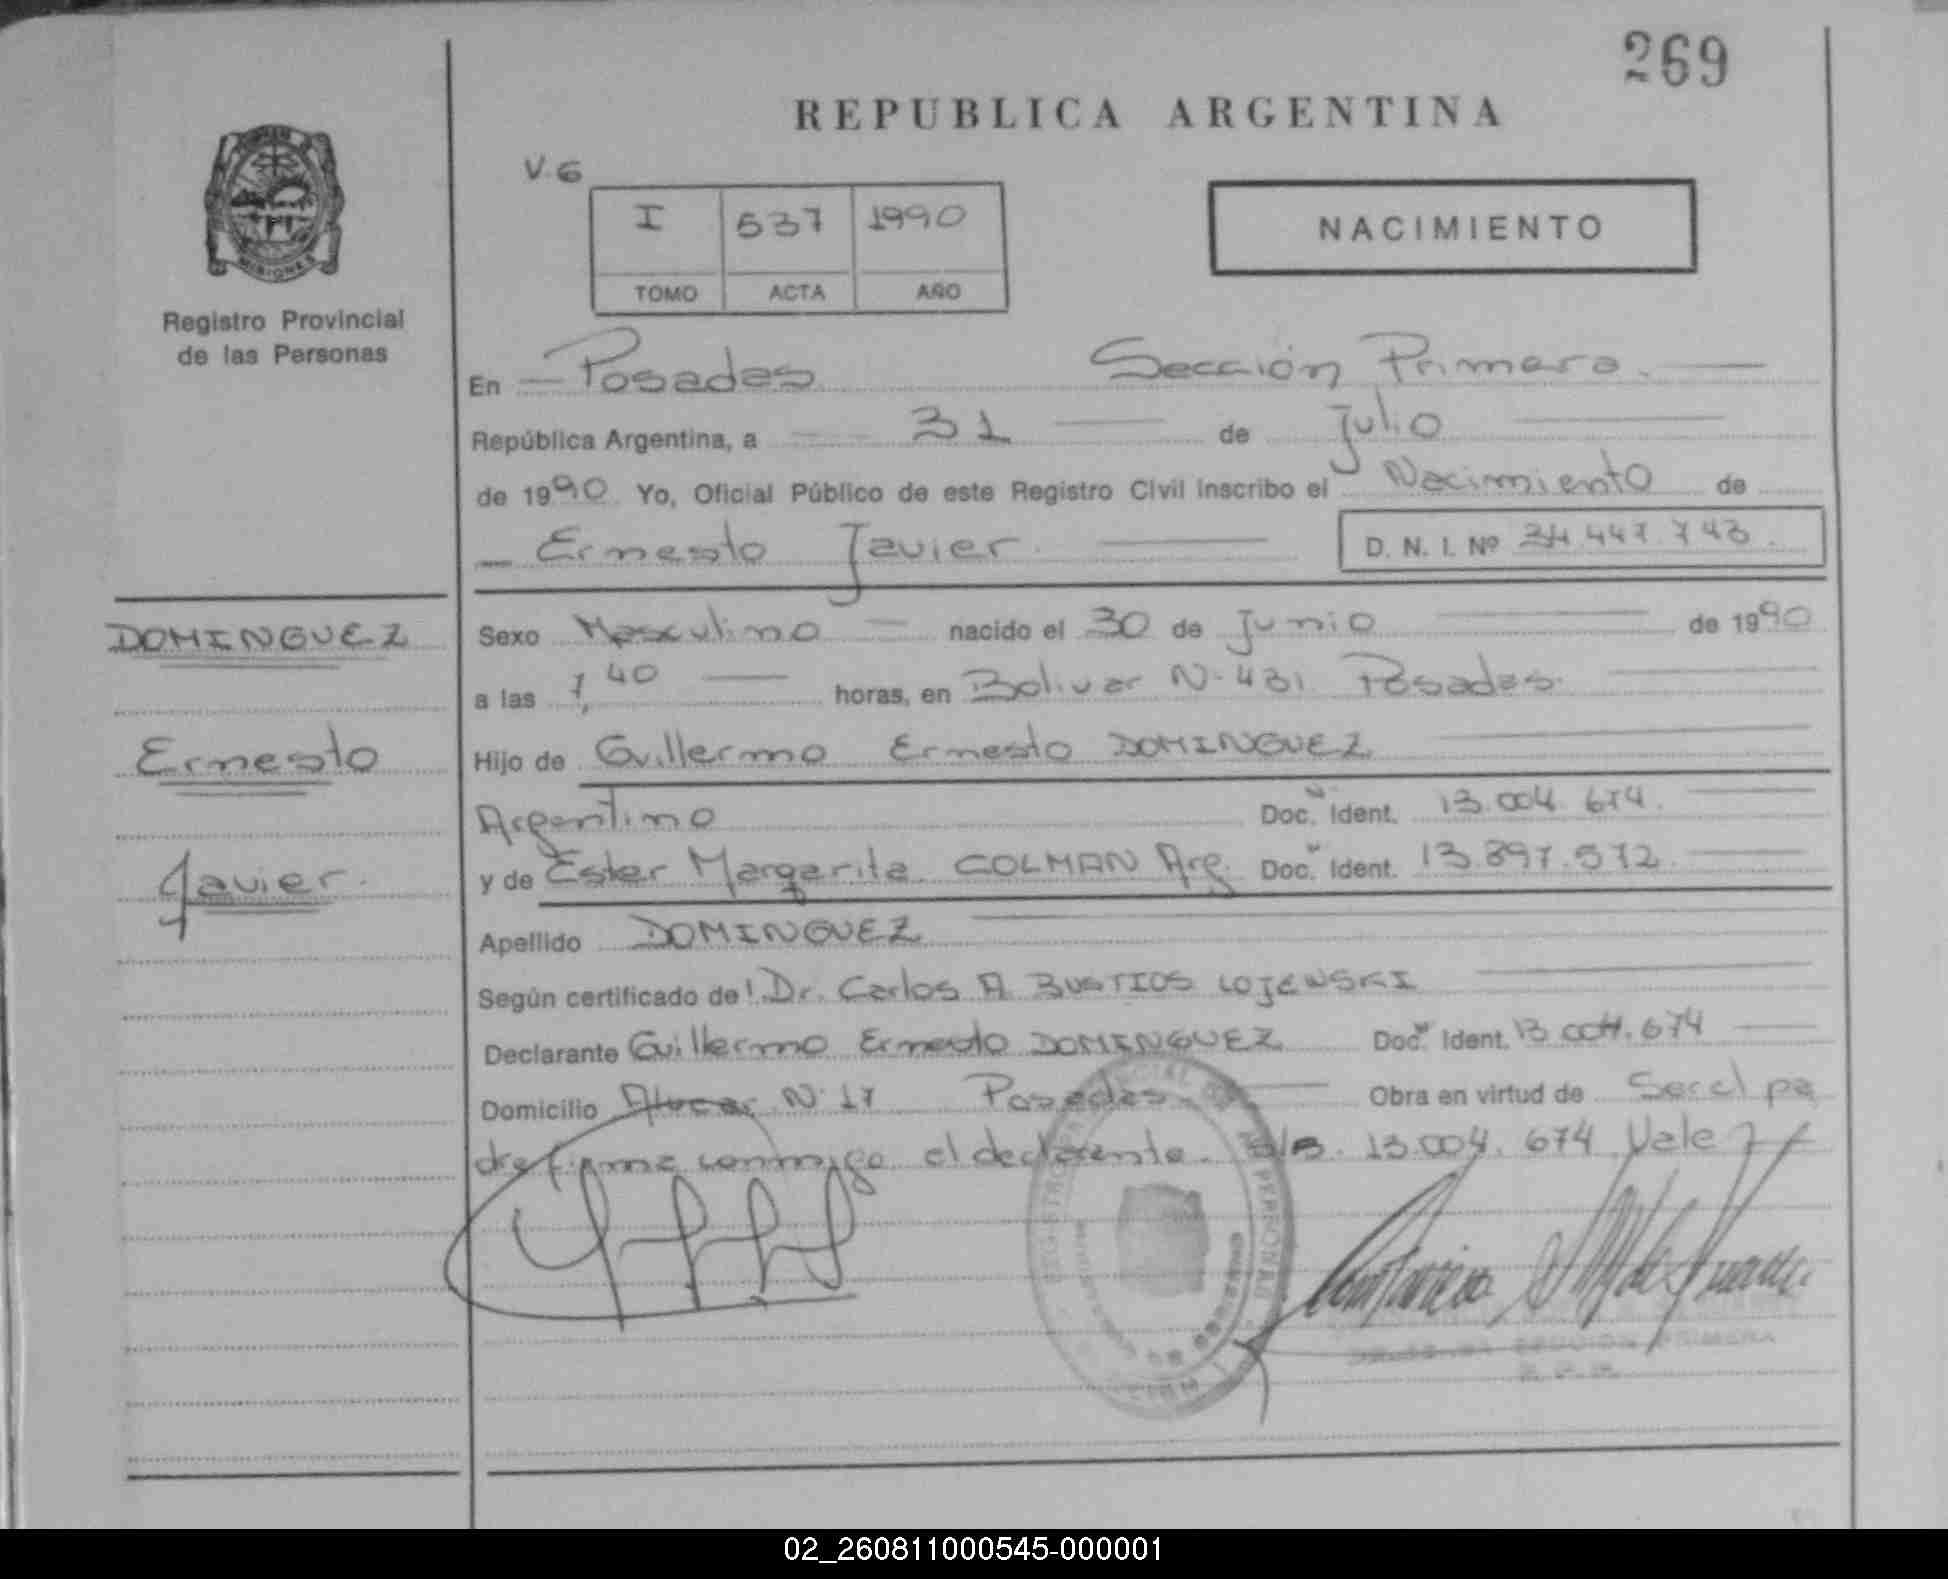 269
REPUBLICA ARGENTINA
V. 6
I 537 1990
TOMO ACTA AÑO
NACIMIENTO
MISIONES
Registro Provincial
de las Personas
En Posadas Sección Primera.
República Argentina, a 31 de Julio
de 1990 Yo, Oficial Público de este Registro Civil inscribo el Nacimiento de
Ernesto Javier. D. N. I. Nº 34.447.743.
DOMINGUEZ
Ernesto
Javier.
Sexo Masculino nacido el 30 de Junio de 1990
a las 1,40 horas, en Bolivar N. 431 Posadas.
Hijo de Guillermo Ernesto DOMINGUEZ
Argentino Doc. Ident. 13.004.674.
y de Ester Margarita COLMAN Arg. Doc. Ident. 13.897.572
Apellido DOMINGUEZ
Según certificado de: Dr. Carlos A. BUSTIOS LOJEWSKI
Declarante Guillermo Ernesto DOMINGUEZ Doc. Ident. 13.004.674
Domicilio N. 17 Posadas. Obra en virtud de Ser el pa
dre firma conmigo el declarante. 13.004.674 Vale
SECCION PRIMERA
02_260811000545-000001